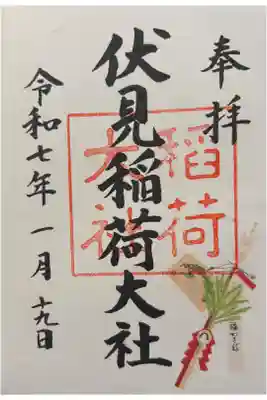 奉拝
伏見稲荷大社
稲荷
大社
令和七年一月十九日